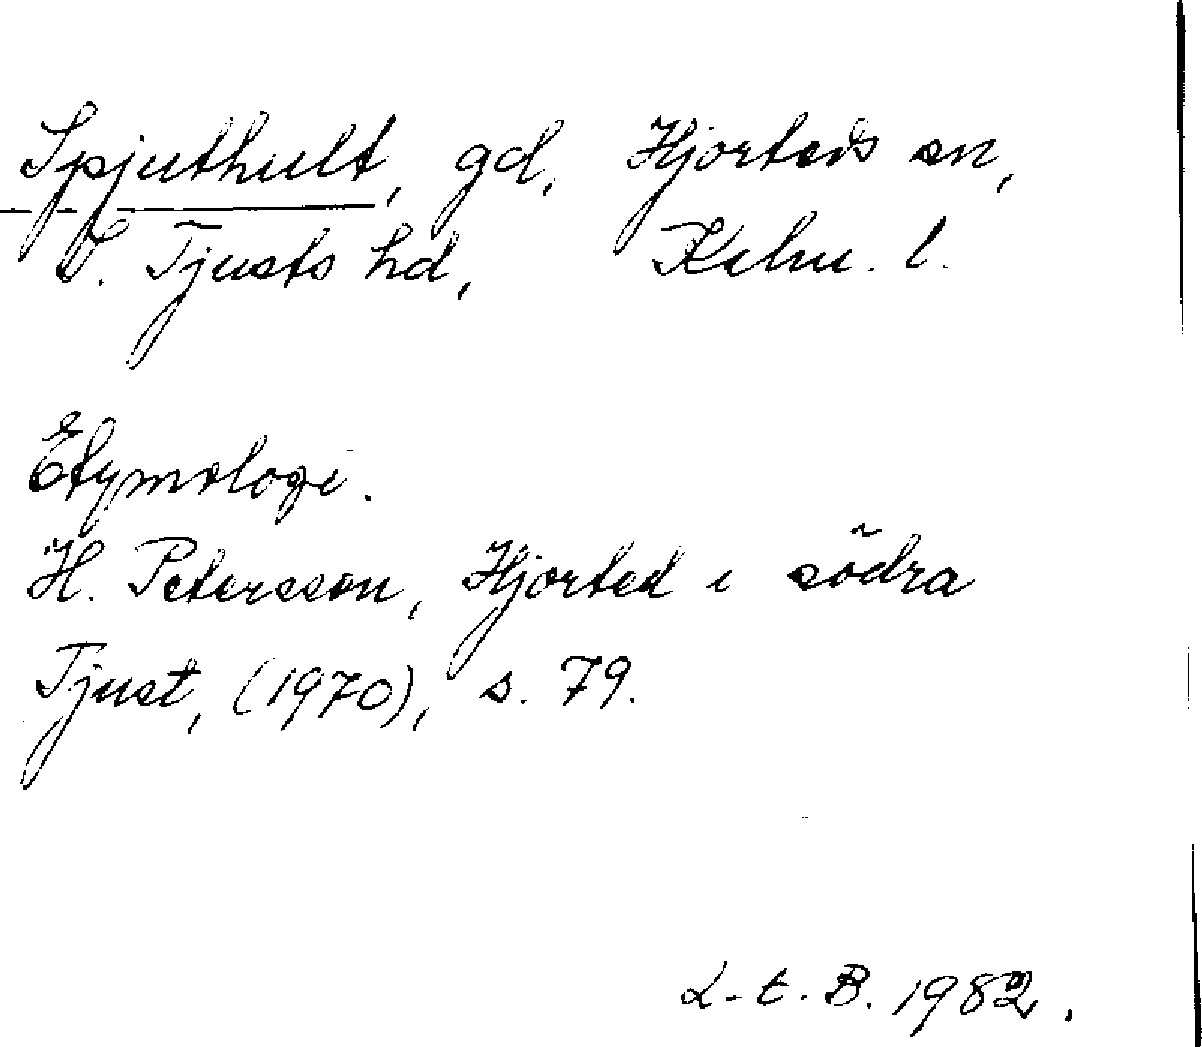 Spjuthult, gd, Hjorteds sn,
S. Tjusts hd, Kalm. l.
Etymologi.
H. Petersson, Hjorted i södra
Tjust, (1970), s. 79.
L-t. B. 1982.